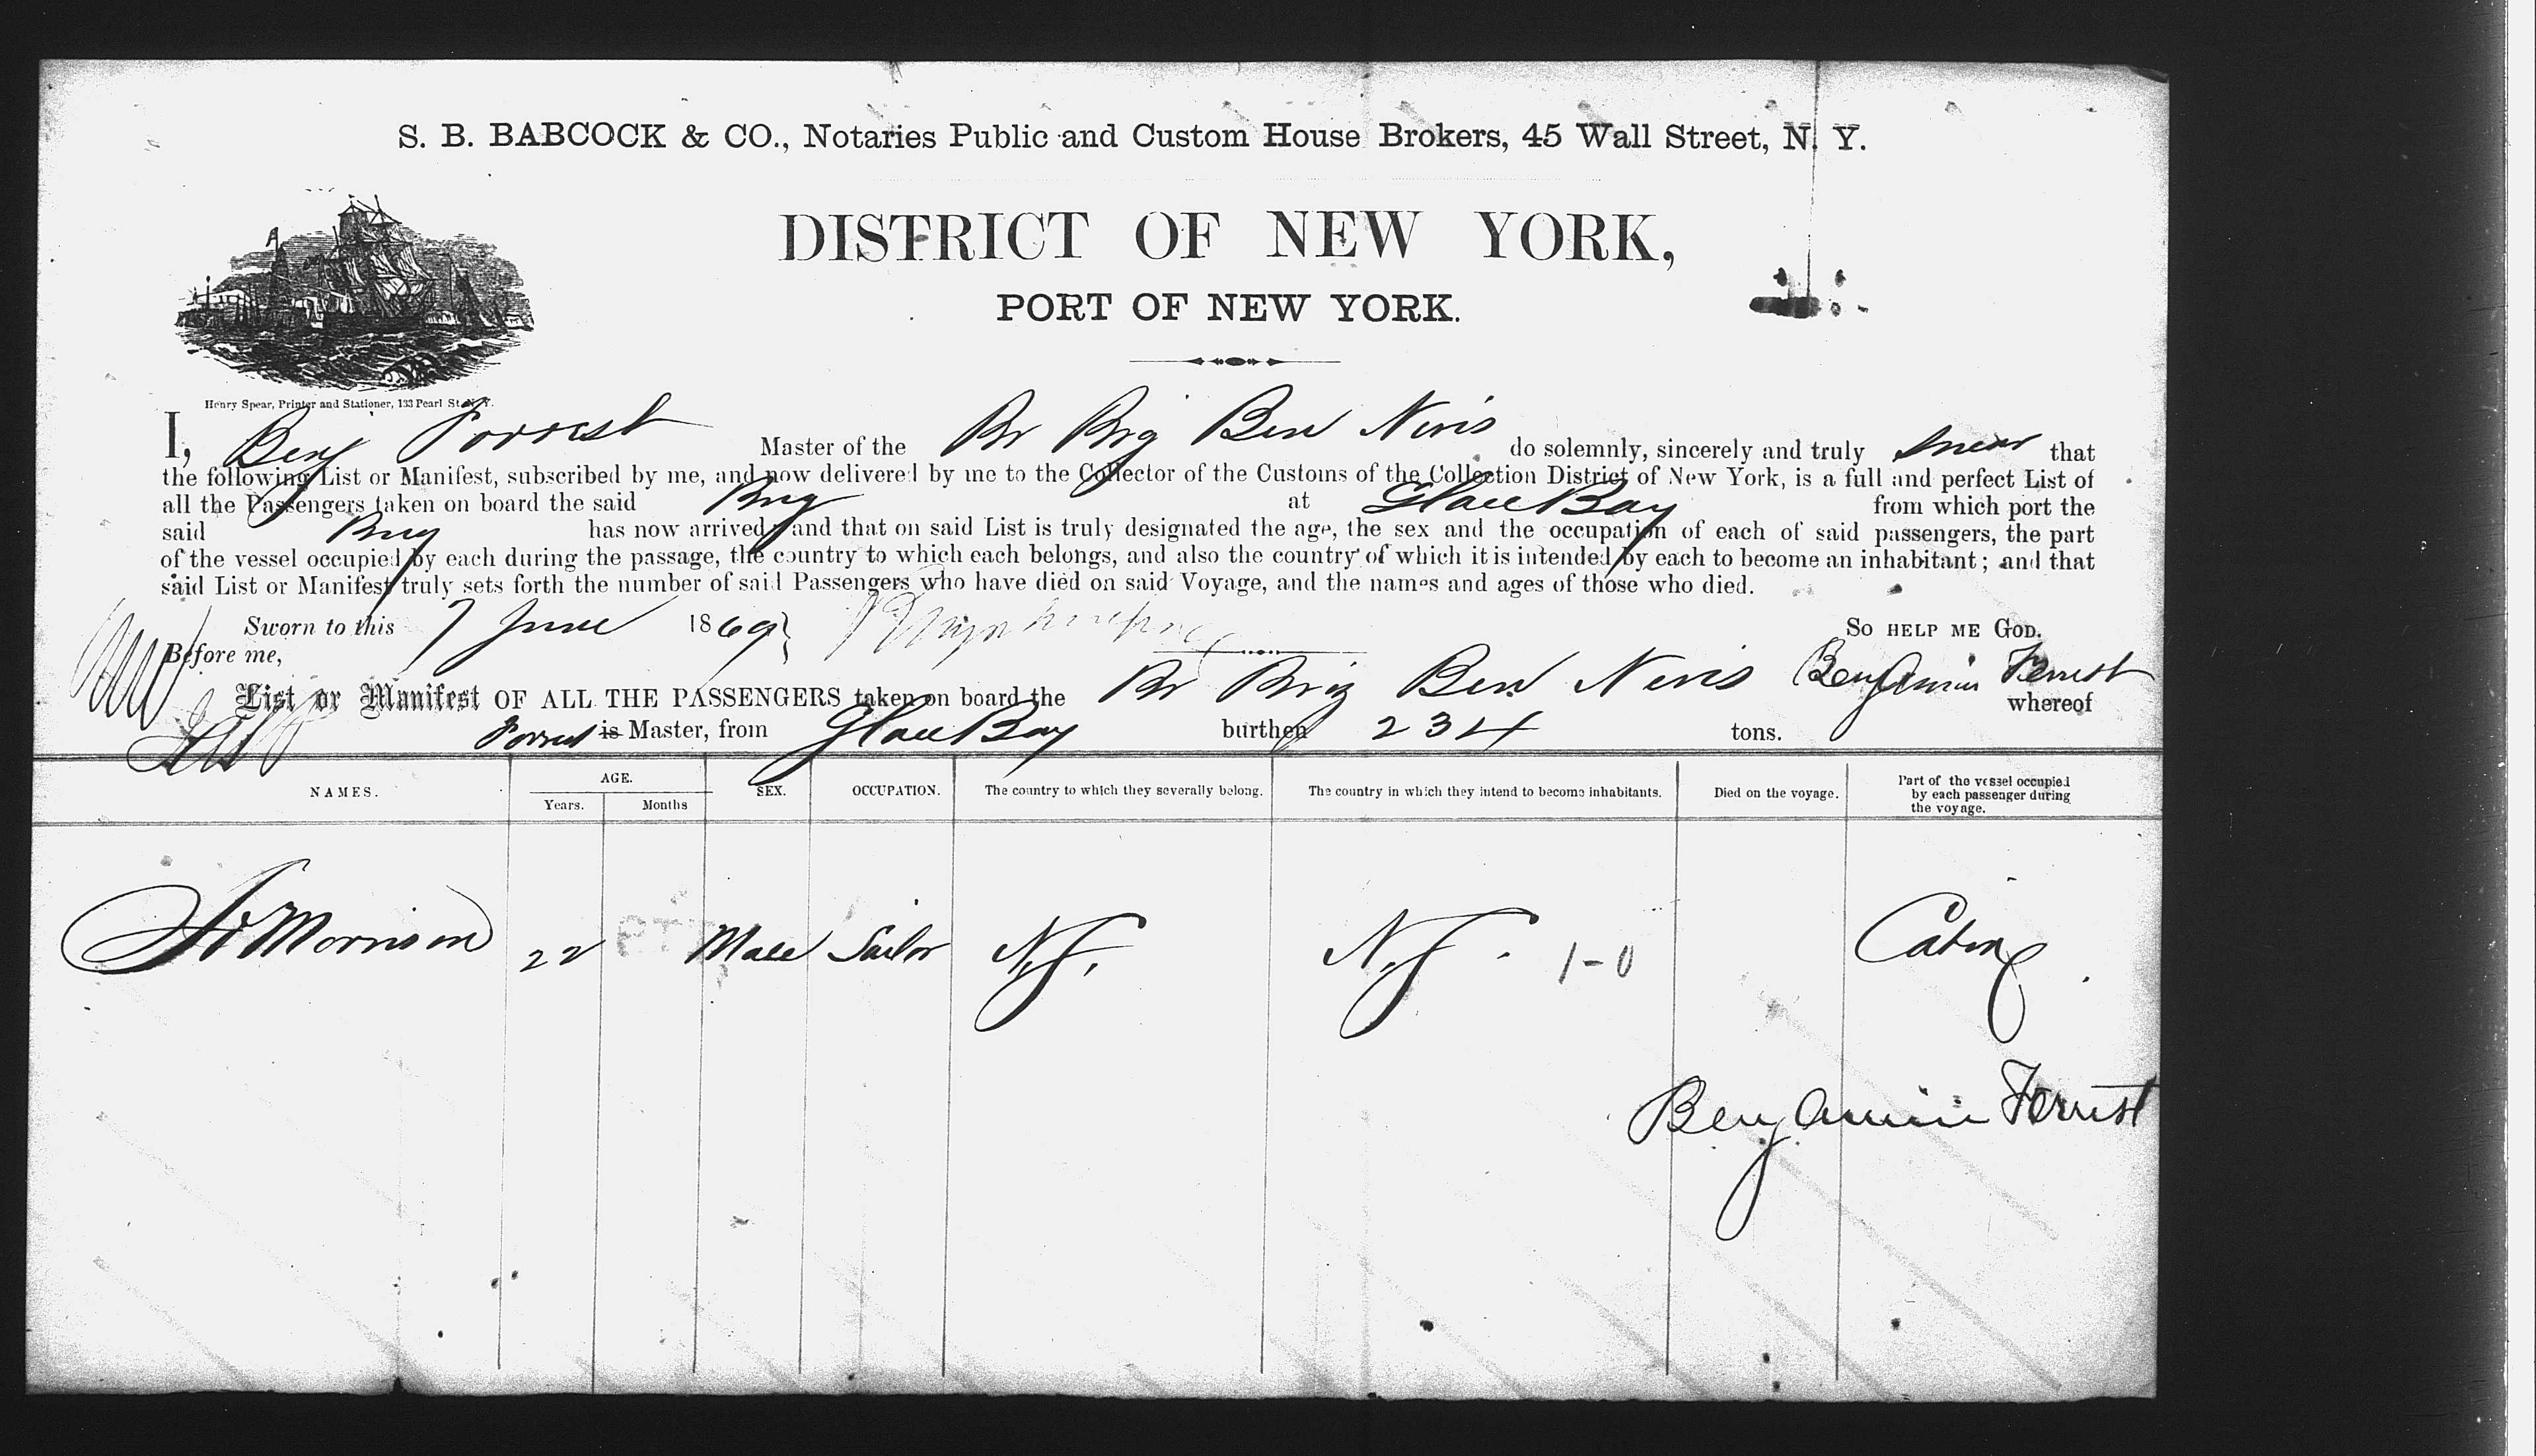 S. B. BABCOCK & CO., Notaries Public and Custom House Brokers, 45 Wall Street, N. Y.
DISTRICT OF NEW YORK,
PORT OF NEW YORK.
Henry Spear, Printer and Stationer, 133 Pearl St. N. Y.
I, Benj Forrest Master of the Br Brig Ben Nevis do solemnly, sincerely and truly swear that
the following List or Manifest, subscribed by me, and now delivered by me to the Collector of the Customs of the Collection District of New York, is a full and perfect List of
all the Passengers taken on board the said Brig at Glace Bay from which port the
said Brig has now arrived; and that on said List is truly designated the age, the sex and the occupation of each of said passengers, the part
of the vessel occupied by each during the passage, the country to which each belongs, and also the country of which it is intended by each to become an inhabitant; and that
said List or Manifest truly sets forth the number of said Passengers who have died on said Voyage, and the names and ages of those who died.
Sworn to this 7 June 1869 So HELP ME GOD.
Before me, Benjamin Forrest
List or Manifest OF ALL THE PASSENGERS taken on board the Br Brig Ben Nevis whereof
Forrest is Master, from Glace Bay burthen 234 tons.
NAMES. AGE. SEX. OCCUPATION. The country to which they severally belong. The country in which they intend to become inhabitants. Died on the voyage. Part of the vessel occupied by each passenger during the voyage.
Years. Months
Morrison 22 Male Sailor 1-0 Cabin
Benjamin Forrest